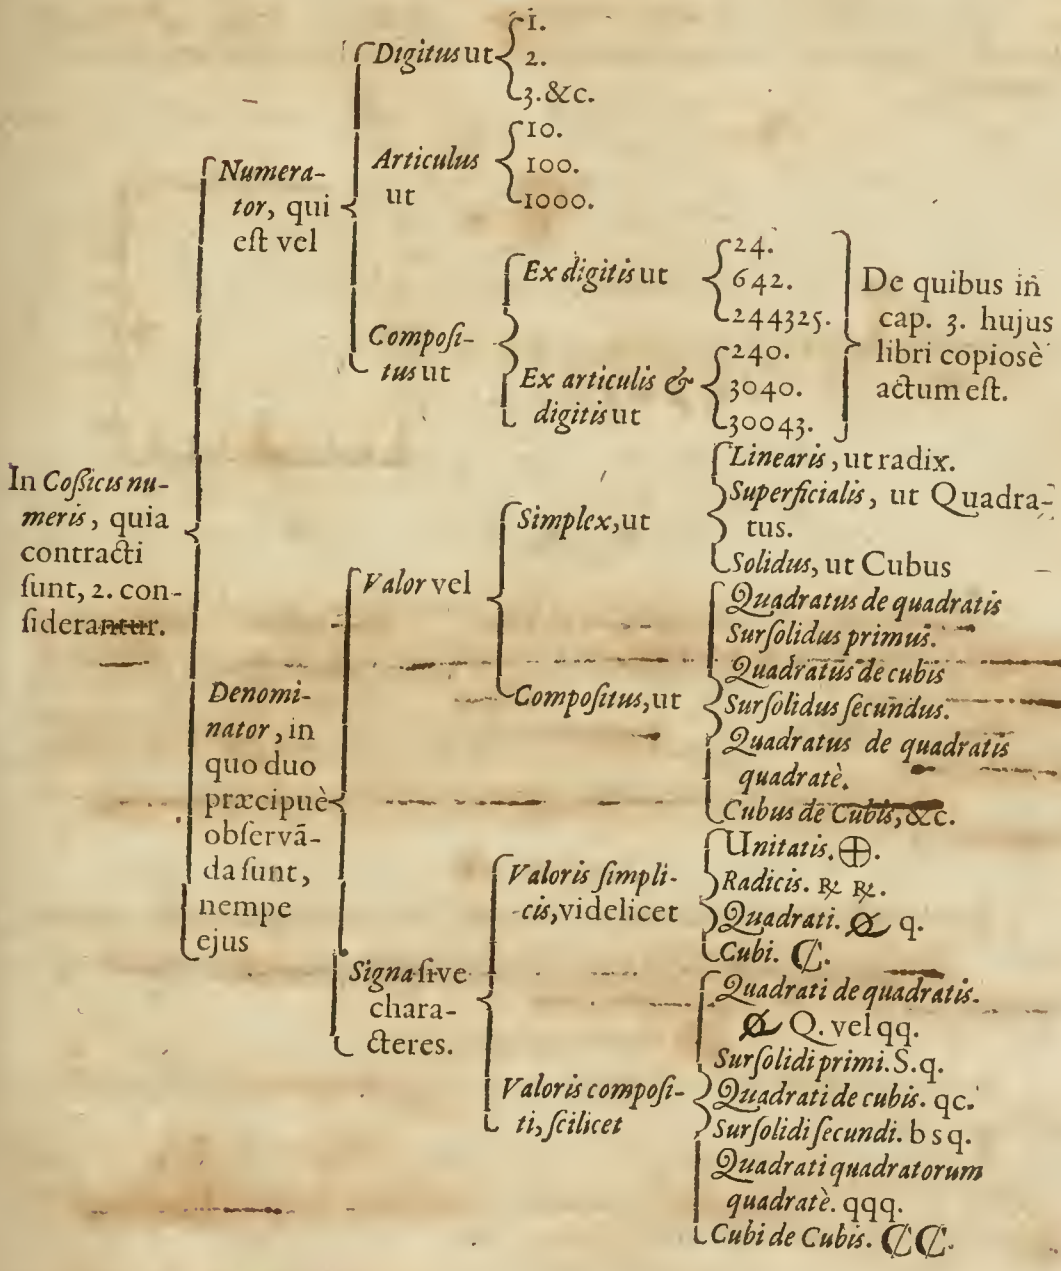 In Coßicis nu-
meris, quia
contracti
ſunt, 2. con-
ſiderantur.
Numera-
tor, qui
eſt vel
Digitus ut
1.
2.
3. &c.
Articulus
ut
10.
100.
1000.
Compoſi-
tus ut
Ex digitis ut
24.
642.
244325.
Ex articulis &
digitis ut
240.
3040.
30043.
De quibus in
cap. 3. hujus
libri copiosè
actum eſt.
Denomi-
nator, in
quo duo
præcipuè
obſervā-
da ſunt,
nempe
ejus
Valor vel
Simplex, ut
Linearis, ut radix.
Superficialis, ut Quadra-
tus.
Solidus, ut Cubus
Compoſitus, ut
Quadratus de quadratis
Surſolidus primus.
Quadratus de cubis
Surſolidus ſecundus.
Quadratus de quadratis
quadratè.
Cubus de Cubis, &c.
Signa ſive
chara-
cteres.
Valoris ſimpli-
cis, videlicet
Unitatis. ⊕.
Radicis. ℞ ℞.
Quadrati. q.
Cubi. ₡.
Valoris compoſi-
ti, ſcilicet
Quadrati de quadratis.
Q. vel qq.
Surſolidi primi. S. q.
Quadrati de cubis. qc.
Surſolidi ſecundi. b s q.
Quadrati quadratorum
quadratè. qqq.
Cubi de Cubis. ₡₡.